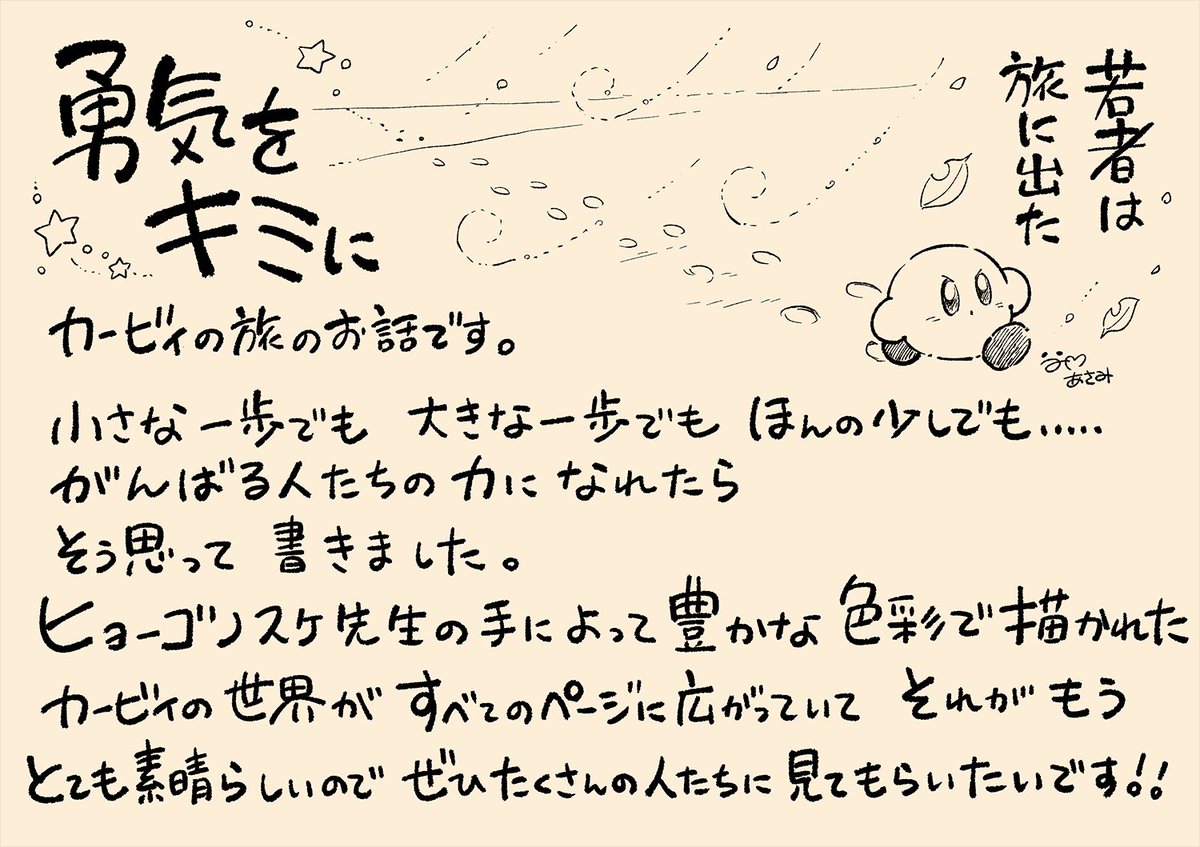 勇気を
キミに
若者は
旅に出た
カービィの旅のお話です。
小さな一歩でも 大きな一歩でも ほんの少しでも.....
がんばる人たちの力になれたら
そう思って 書きました。
ヒョーゴノスケ先生の手によって豊かな色彩で描かれた
カービィの世界が すべてのページに広がっていて それがもう
とても素晴らしいので ぜひたくさんの人たちに見てもらいたいです!!
あさみ